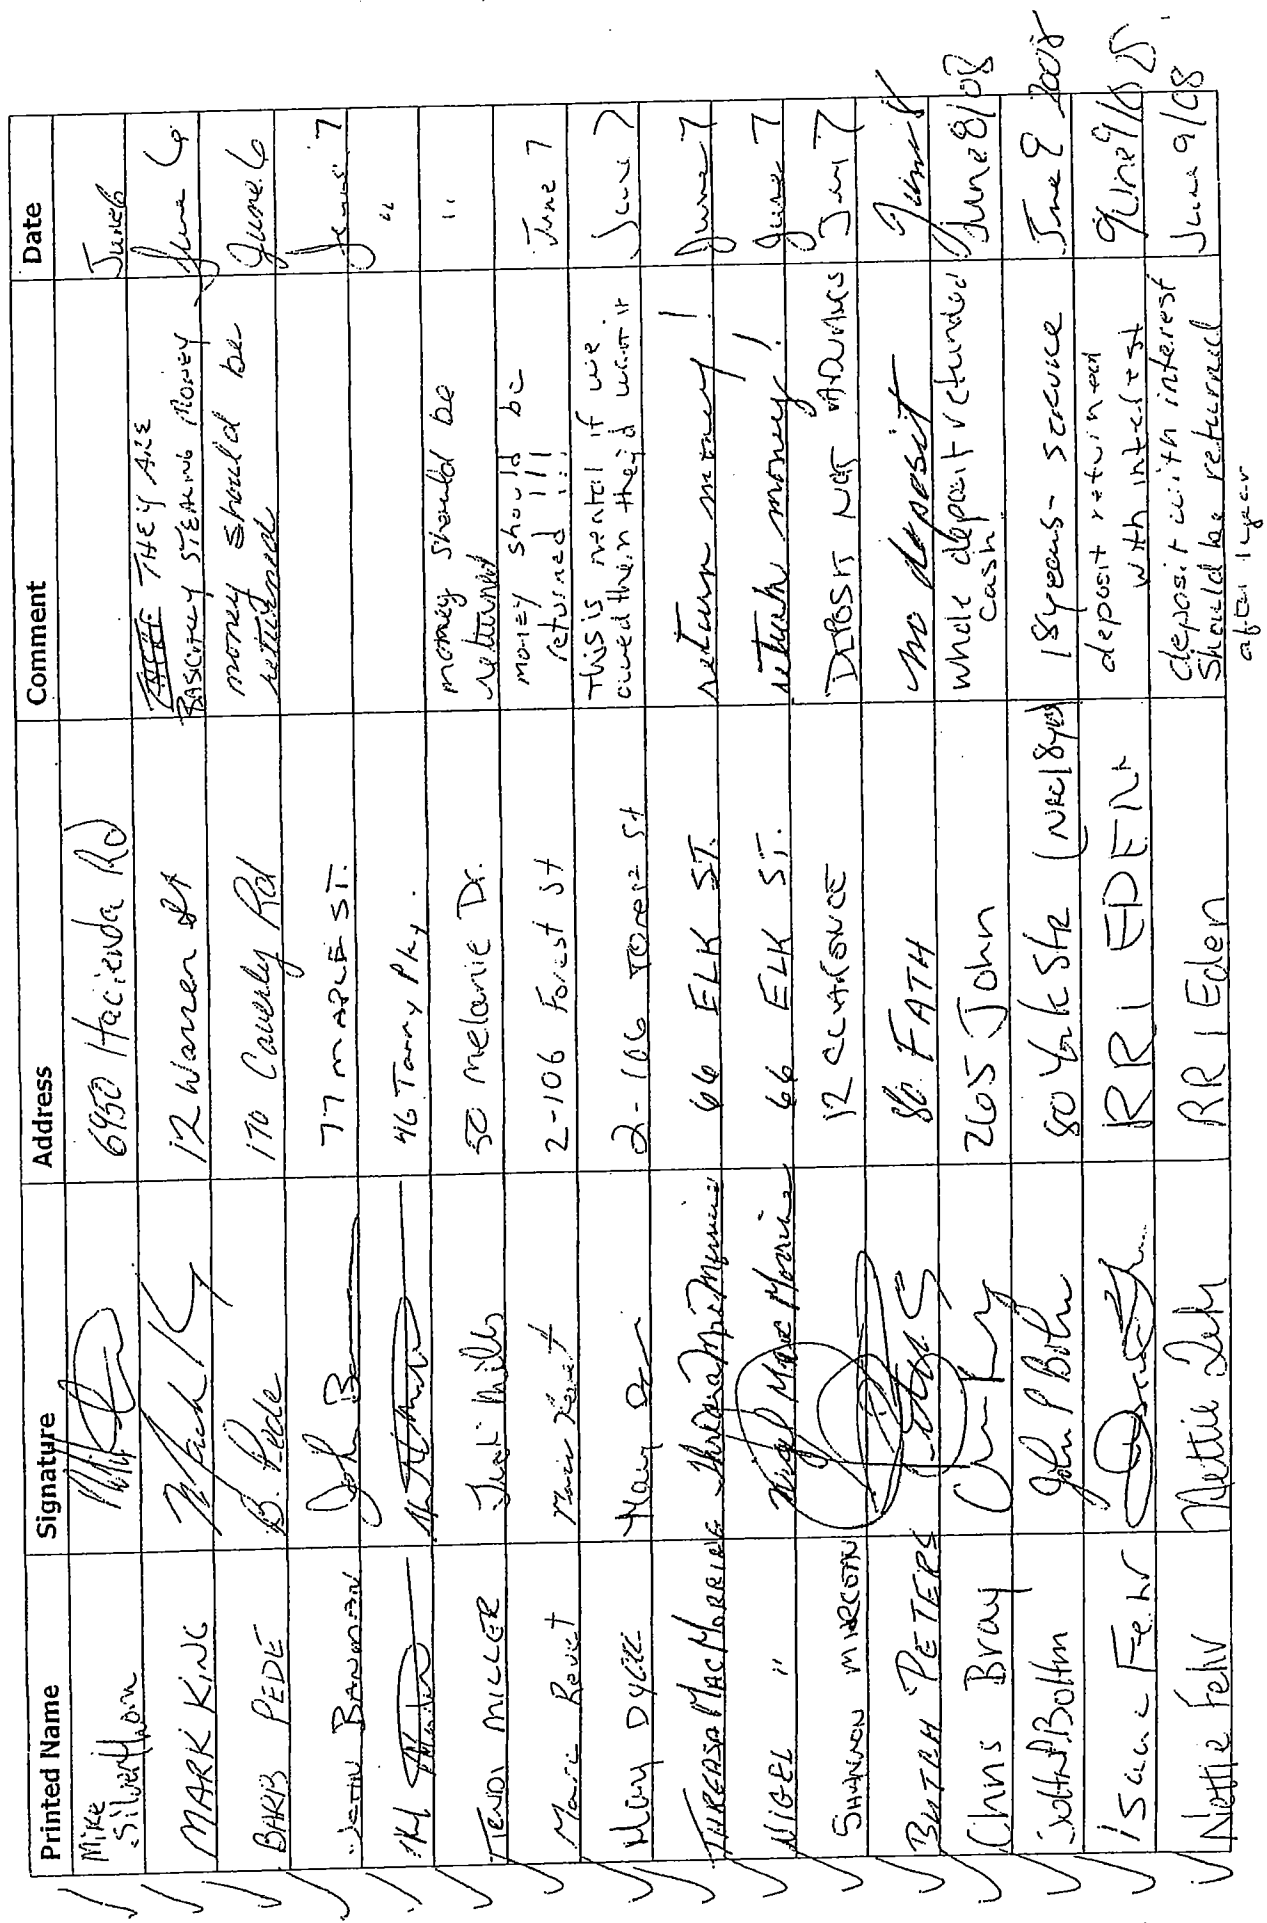 Printed Name Signature Address Comment Date
Mike Silverthorn 6950 Hacienda Rd June 6
MARK KING Mark K 12 Warren St THEY ARE
BASICALLY STEALING MONEY June 6
BARB PEDE B. Pede 170 Caverly Rd money should be
returned June 6
JOHN BANMAN John B 77 MAPLE ST. June 7
46 Tammy Pky. "
TENDI MILLER 50 Melanie Dr. money should be
returned "
Marc 2-106 Forest St money should be
returned !!! June 7
Mary 2-106 Forest St This is mental if we
owed them they'd want it June 7
THREASA MACMORRINE 66 ELK ST. return money! June 7
NIGEL " 66 ELK ST. return money! June 7
SHANNON 12 CLARENCE DEPOSIT June 7
BUTCH PETERS 86 FATH no deposit June 8
Chris Bray 265 John whole deposit refunded
cash June 8/08
John P Bohm 80 York Str (NRC 18yrs) 18 years - service June 9 2008
Isaac Fehr RR1 EDEN deposit returned
with interest June 9/
Nettie Fehr Nettie Fehr RR1 Eden deposit with interest
Should be returned
after 1 year June 9/08